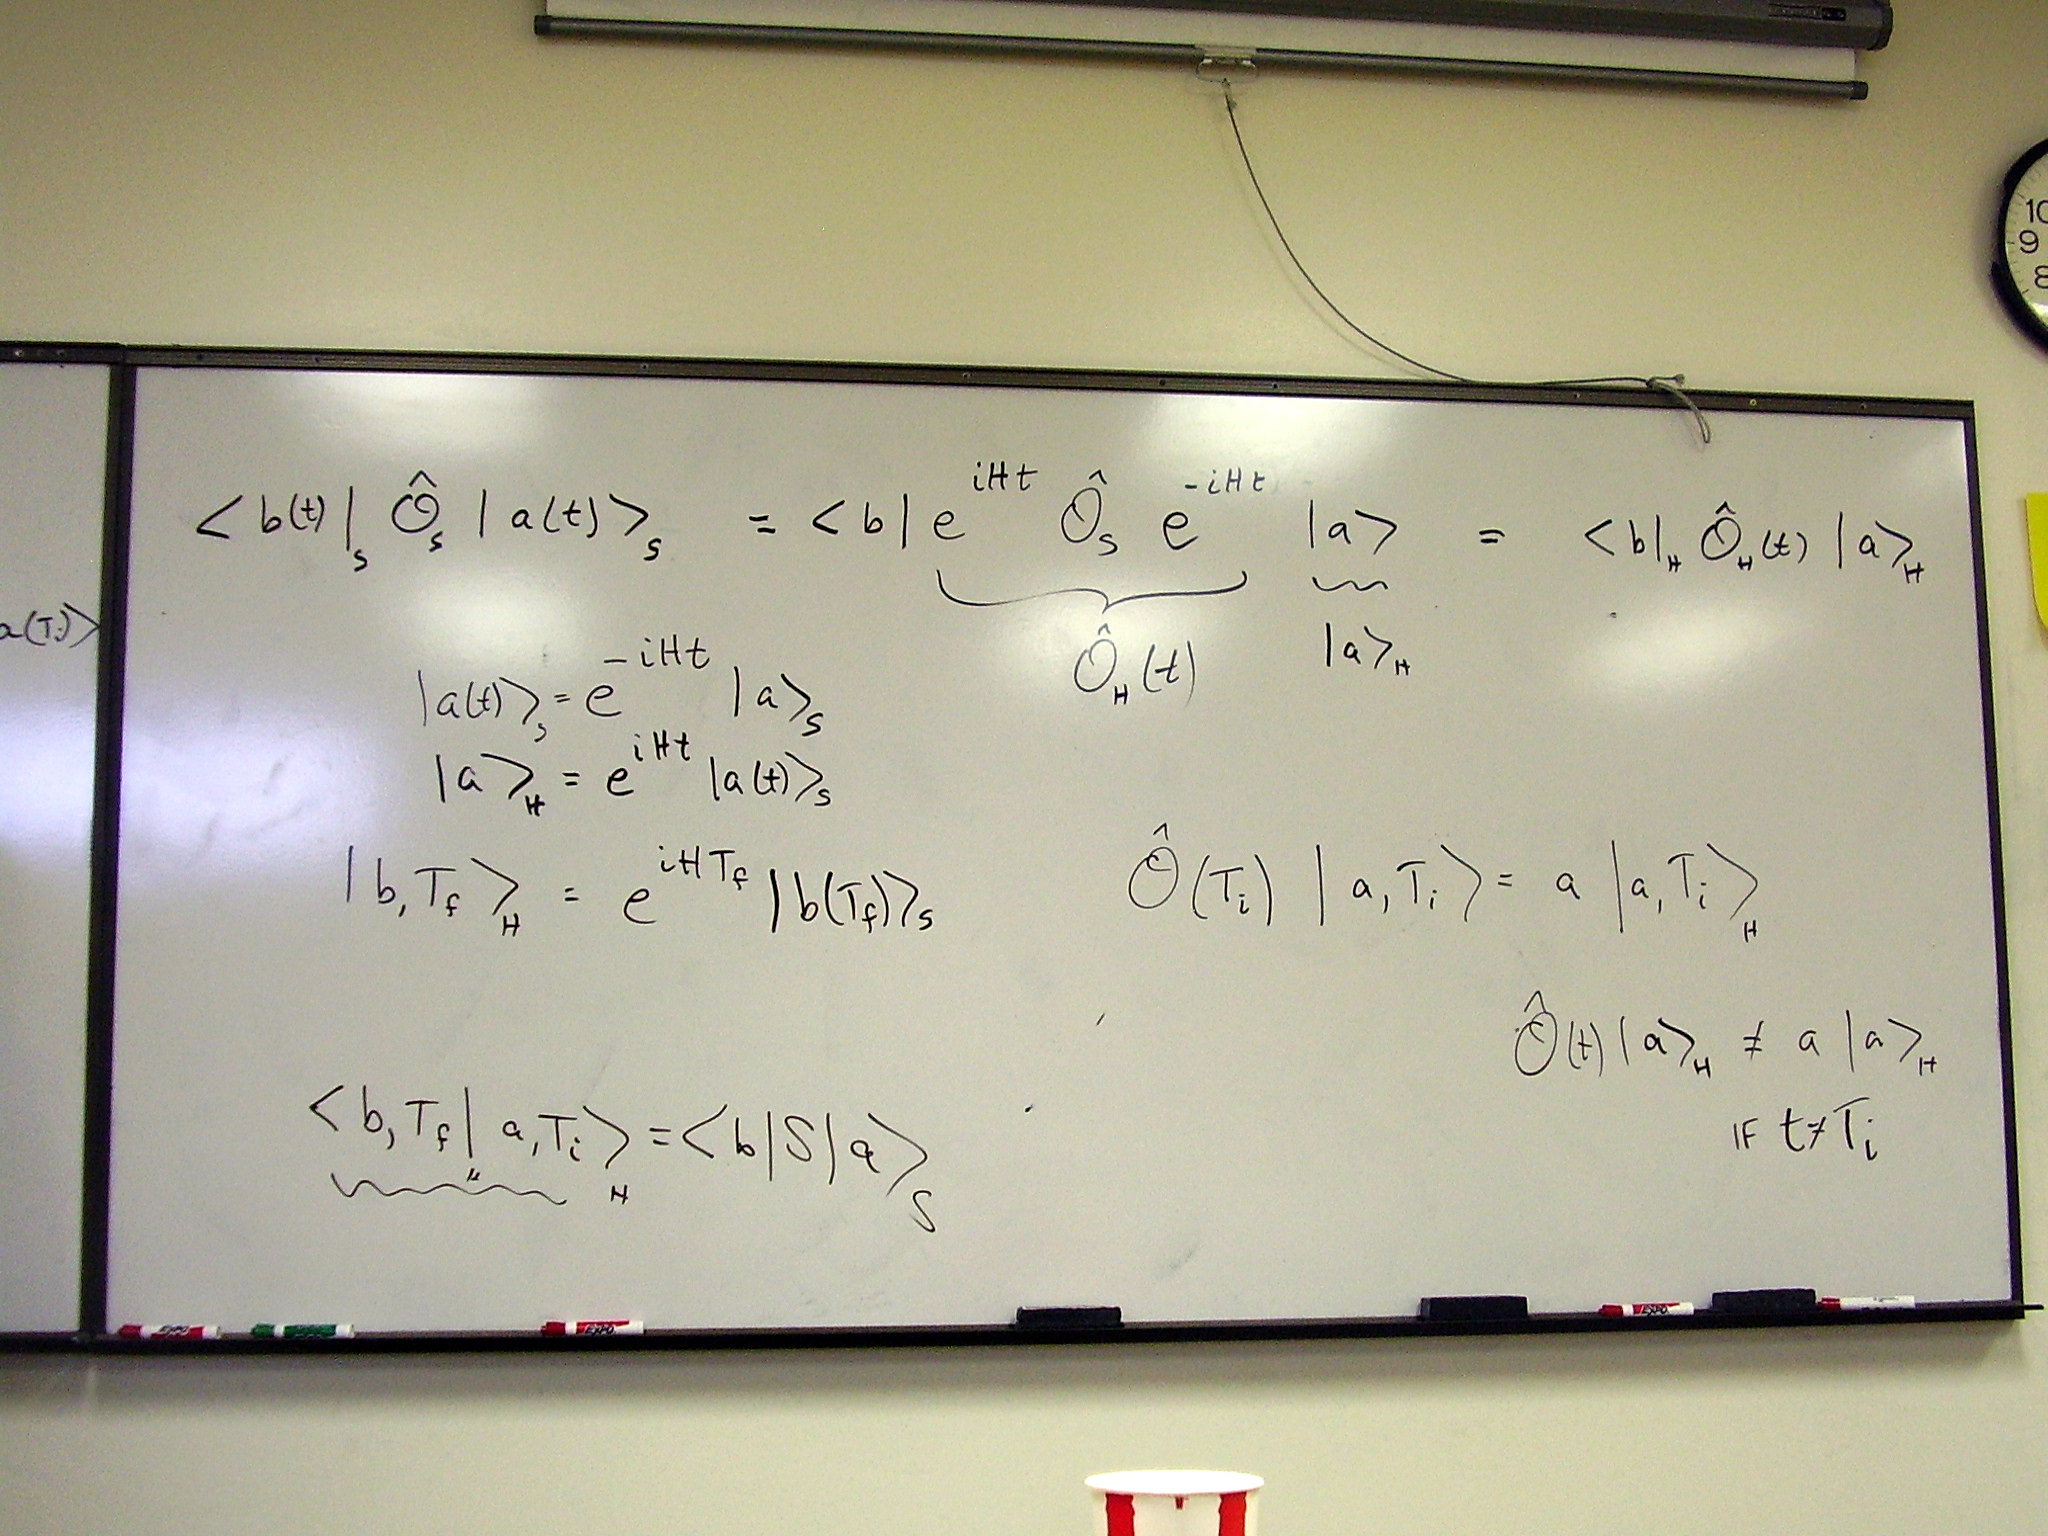 <b(t)|_S Ô_S |a(t)>_S = <b| e^{iHt} Ô_S e^{-iHt} |a> = <b|_H Ô_H(t) |a>_H
Ô_H(t) |a>_H
a(T_i)>
|a(t)>_S = e^{-iHt} |a>_S
|a>_H = e^{iHt} |a(t)>_S
|b,T_f>_H = e^{iHT_f} |b(T_f)>_S
Ô(T_i) |a,T_i> = a |a,T_i>_H
Ô(t) |a>_H ≠ a |a>_H
IF t≠T_i
<b,T_f| a,T_i>_H = <b|S|a>_S
10
9
8
EXPO
EXPO
EXPO